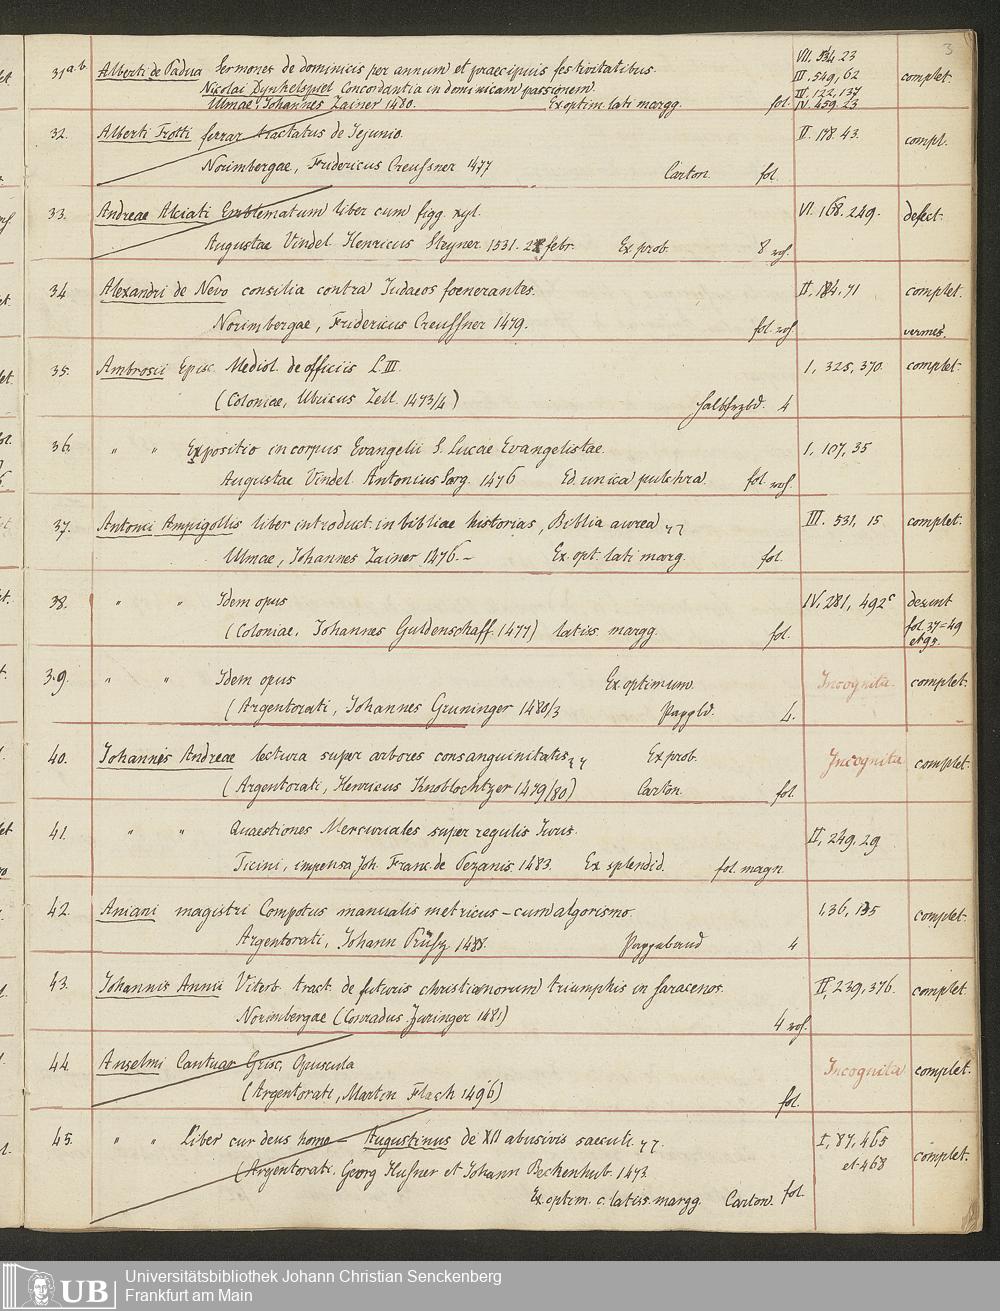 3
31a.b. Alberti de Padua Sermones de dominicis per annum et praecipuis festivitatibus. VII. 534. 23 complet.
Nicolai Dynkelspuel Concordantia in dominicam passionem. III. 549, 62
Ulmae, Johannes Zainer 1480. Ex optim. lati margg. fol. IV. 122, 137
IV. 459. 23
32. Alberti Trotti ferrar tractatus de Jejunio. II. 178. 43. compl.
Norimbergae, Fridericus Creussner 1477 Carton fol.
33. Andreae Alciati Emblematum liber cum figg. xyl. VI. 168. 249. defect.
Augustae Vindel. Henricus Steyner. 1531. febr. Ex prob. 8 roh.
34 Alexandri de Nevo consilia contra Judaeos foenerantes. II, 184, 71 complet.
Norimbergae, Fridericus Creussner 1479. fol. roh. vermes.
35. Ambrosii Episc. Mediol. de officiis L. III. I, 325, 370 complet.
(Coloniae, Ulricus Zell. 1473/4) Halbfrzbd. 4
36. " " Expositio in corpus Evangelii S. Lucae Evangelistae. I, 107, 35
Augustae Vindel. Antonius Sorg. 1476 Ed. unica pulchra. fol. roh.
37. Antonii Ampigollis liber introduct. in bibliae historias, Biblia aurea III. 531, 15 complet.
Ulmae, Johannes Zainer 1476. – Ex. opt. lati marg. fol.
38. " " Idem opus IV, 281, 492c desunt
(Coloniae, Johannes Guldenschaff. 1477) latiss. margg. fol. fol. 37=49
et 95.
39. " " Idem opus Ex. optimum. Incognita. complet.
(Argentorati, Johannes Gruninger 1480/3 Pappbd. 4.
40. Johannis Andreae lectura super arbores consanguinitatis Ex prob. Incognita complet.
(Argentorati, Henricus Knoblochtzer 1479/80) Carton. fol.
41. " " Quaestiones Mercuriales super regulis Juris. II, 249, 29
Ticini, impensa Joh. Franc. de Pezanis. 1483. Ex splendid. fol. magn
42. Aniani magistri Compotus manualis metricus – cum algorismo. I, 36, 135 complet.
Argentorati, Johann Prüss 1488. Pappeband 4
43. Johannis Annii Viterb. tract. de futuris christianorum triumphis in saracenos. II, 239, 376. complet.
Norimbergae (Conradus Zeninger 1481) 4 roh.
44. Anselmi Cantuar Episc. Opuscula Incognita complet.
(Argentorati, Martin Flach 1496) fol.
45. " " Liber cur deus homo – Augustinus de XII abusivis saeculi. I, 87, 465 complet.
(Argentorati. Georg Husner et Johann Beckenhub. 1473. et 468
Ex. optim. c. latiss. margg. Carton. fol.
UB Universitätsbibliothek Johann Christian Senckenberg
Frankfurt am Main